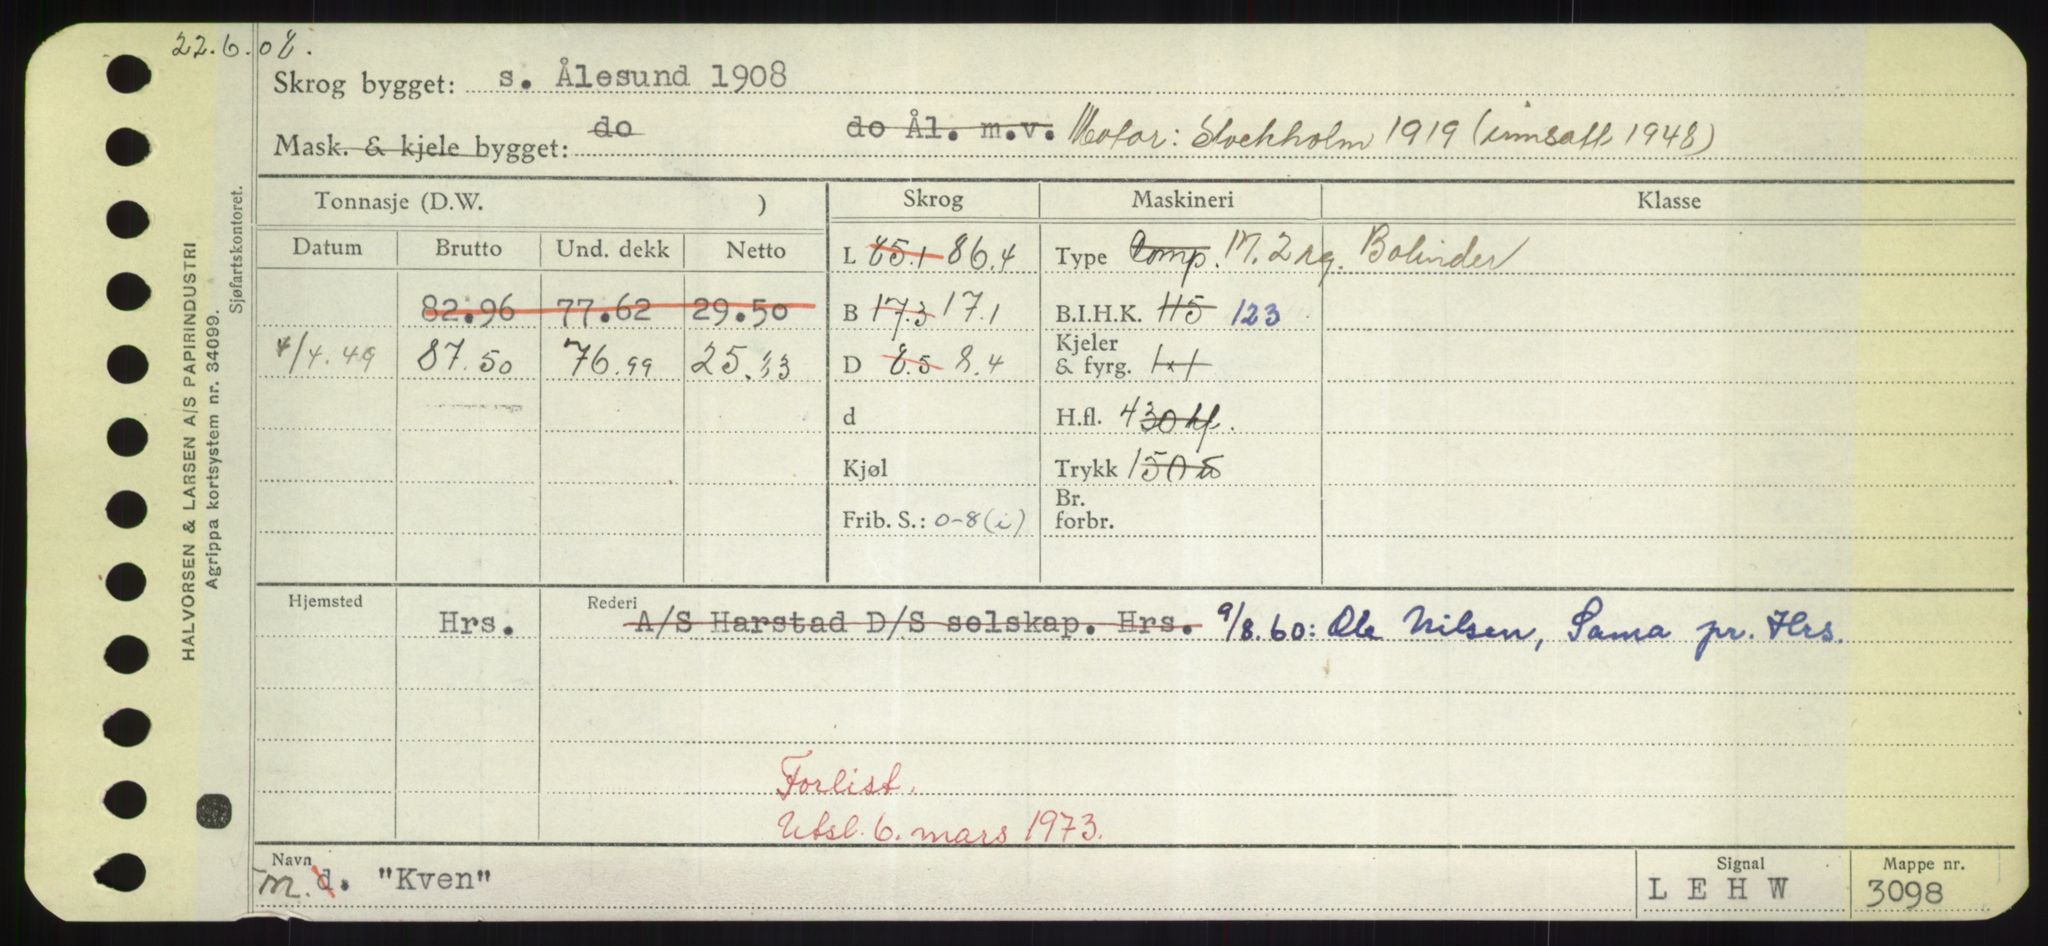 22.6.08.
Skrog bygget: s. Ålesund 1908
Mask. & kjele bygget: do do Ål. m.v. Motor: Stockholm 1919 (innsatt 1948)
Tonnasje (D.W. ) Skrog Maskineri Klasse
Datum Brutto Und. dekk Netto L 85.1 86.4 Type Comp. M. 2 sy. Bolinder
82.96 77.62 29.50 B 17.3 17.1 B.I.H.K. 115 123
4/4.49 87.50 76.99 25.33 D 8.5 8.4 Kjeler & fyrg. 1x1
d H.fl. 430 kf.
Kjøl Trykk 150
Frib. S.: 0-8(i) Br. forbr.
Hjemsted Rederi
Hrs. A/S Harstad D/S selskap. Hrs. 9/8.60: Ole Nilsen, Sama pr. Hrs.
Forlist.
Utsl. 6. mars 1973.
Navn Signal Mappe nr.
m. d. "Kven" L E H W 3098
HALVORSEN & LARSEN A/S PAPIRINDUSTRI
Agrippa kortsystem nr. 34099.
Sjøfartskontoret.